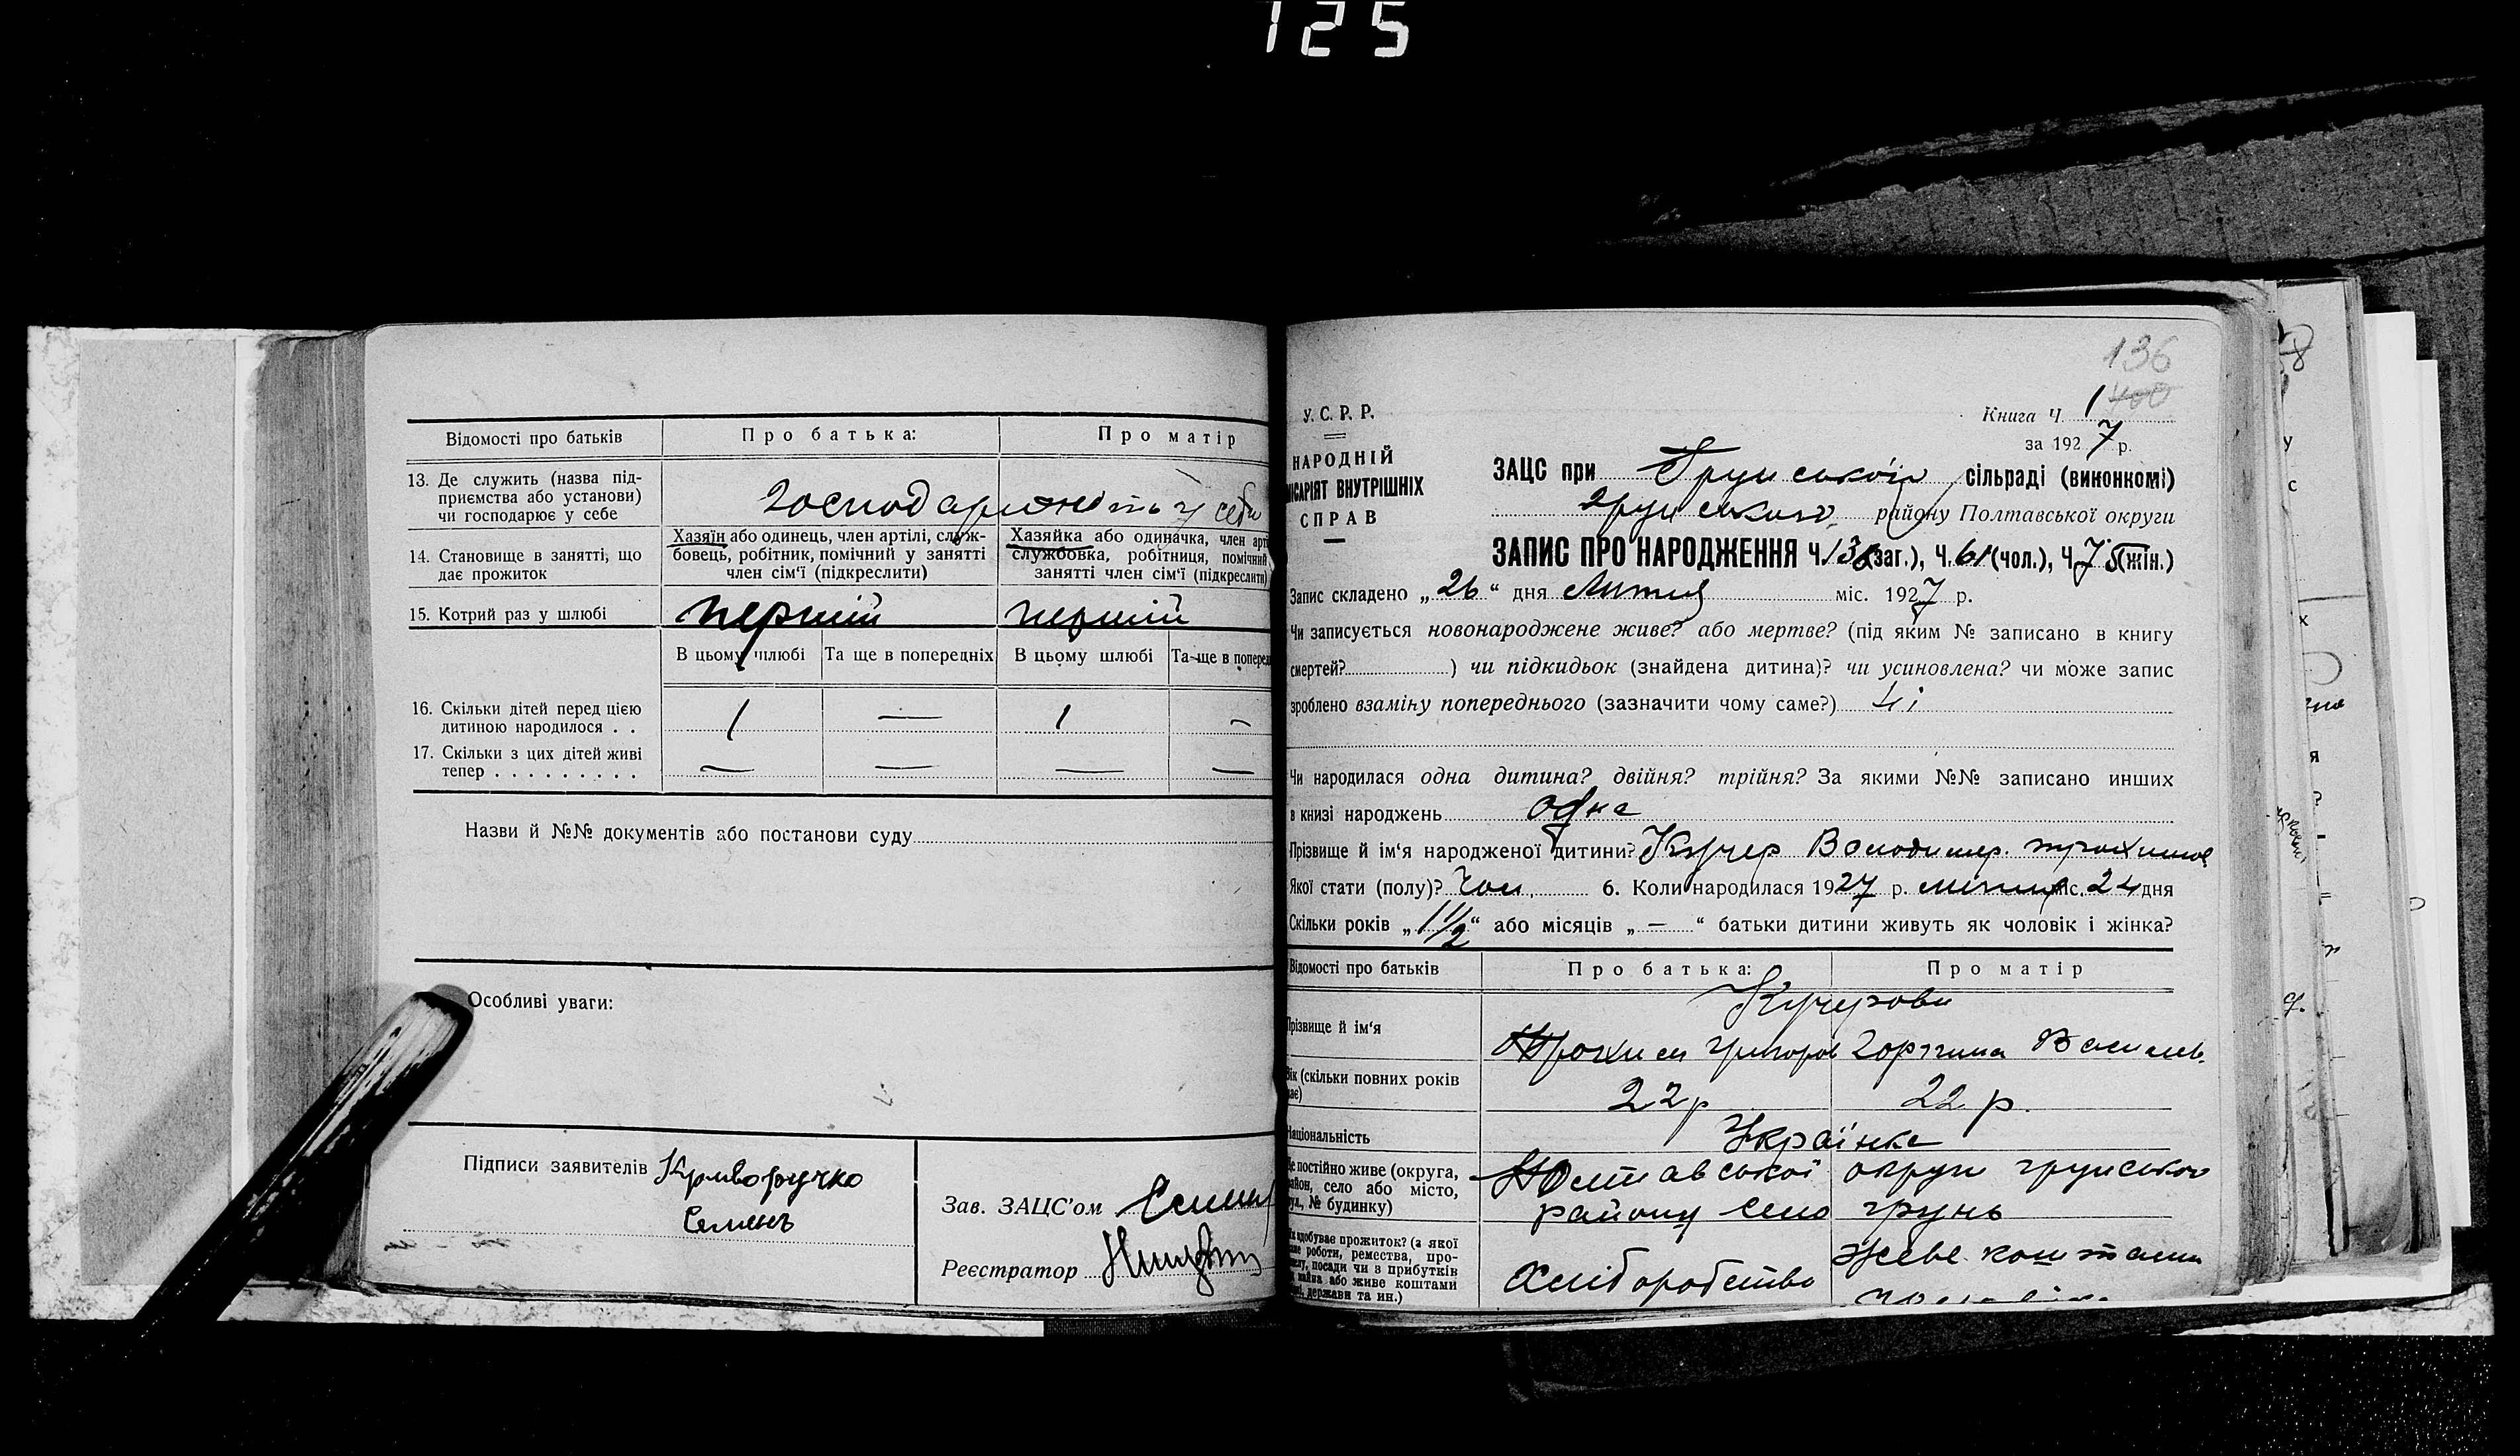 125
Відомості про батьків
Про батька:
Про матір
13. Де служить (назва під-
приємства або установи)
чи господарює у себе
господарюють у себе
14. Становище в занятті, що
дає прожиток
Хазяїн або одинець, член артілі, служ-
бовець, робітник, помічний у занятті
член сім'ї (підкреслити)
Хазяйка або одиначка, член арті
службовка, робітниця, помічний
занятті член сім'ї (підкреслити)
15. Котрий раз у шлюбі
перший
перший
В цьому шлюбі
Та ще в попередніх
В цьому шлюбі
Та ще в поперед
16. Скільки дітей перед цією
дитиною народилося . .
1 — 1 —
17. Скільки з цих дітей живі
тепер . . . . . . . . .
— — — —
Назви й №№ документів або постанови суду
Особливі уваги:
Підписи заявителів Криворучко
Семенъ
Зав. ЗАЦС'ом
Реєстратор
136
400
У. С. Р. Р.
НАРОДНІЙ
ІСАРІЯТ ВНУТРІШНІХ
СПРАВ
Книга Ч. 1
за 1927 р.
ЗАЦС при Грунській сільраді (виконкомі)
грунського району Полтавської округи
ЗАПИС ПРО НАРОДЖЕННЯ Ч. 136 (заг.), Ч. 61 (чол.), Ч. 75 (жін.)
Запис складено „26“ дня Лютия міс. 1927 р.
Чи записується новонароджене живе? або мертве? (під яким № записано в книгу
смертей? ) чи підкидьок (знайдена дитина)? чи усиновлена? чи може запис
зроблено взаміну попереднього (зазначити чому саме?)
Чи народилася одна дитина? двійня? трійня? За якими №№ записано инших
в книзі народжень одна
Прізвище й ім'я народженої дитини? Кучер Володимер трохимов
Якої стати (полу)? Чол. 6. Коли народилася 1927 р. лютия міс. 24 дня
Скільки років „1 1/2“ або місяців „—“ батьки дитини живуть як чоловік і жінка?
Відомості про батьків
Про батька:
Про матір
Кучерови
Прізвище й ім'я
Трохим григоров
Горпина Василев.
Вік (скільки повних років
має)
22 р
22 р.
Національність
Українка
Де постійно живе (округа,
район, село або місто,
вул., № будинку)
Полтавської округи грунського
району село грунь
Як здобуває прожиток? (з якої
саме роботи, ремества, про-
мислу, посади чи з прибутків
з майна або живе коштами
держави та ин.)
Хліборобство
живе коштами